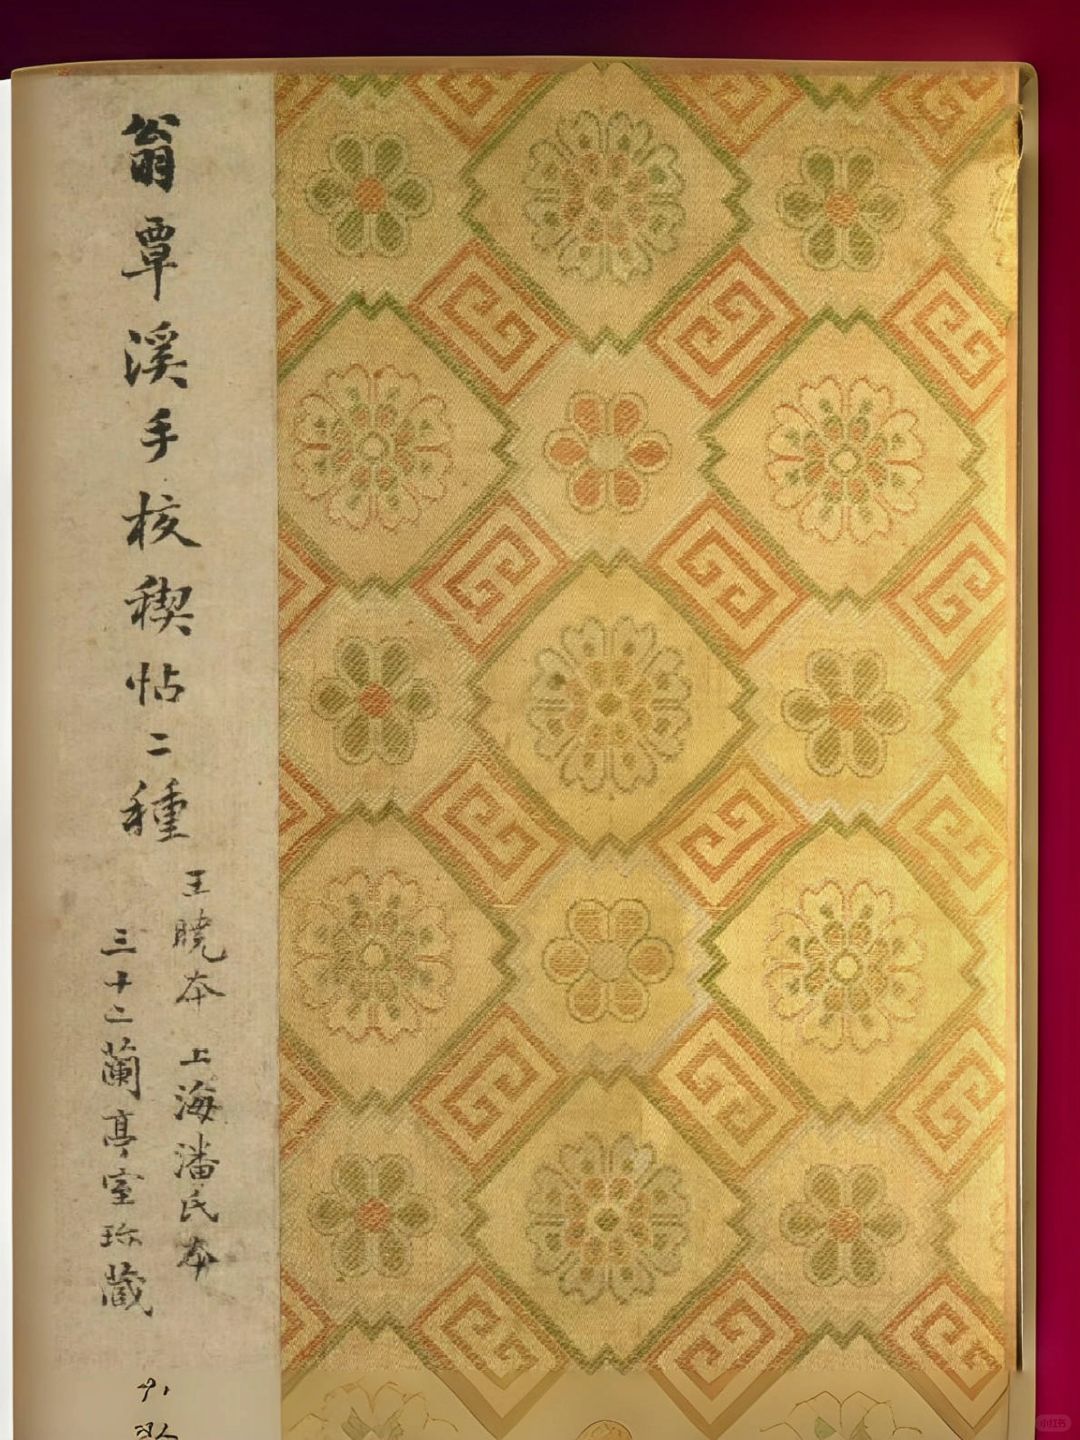 翁覃溪手校稧帖二種
王曉本 上海潘氏本
三十二蘭亭室珎藏
小红书